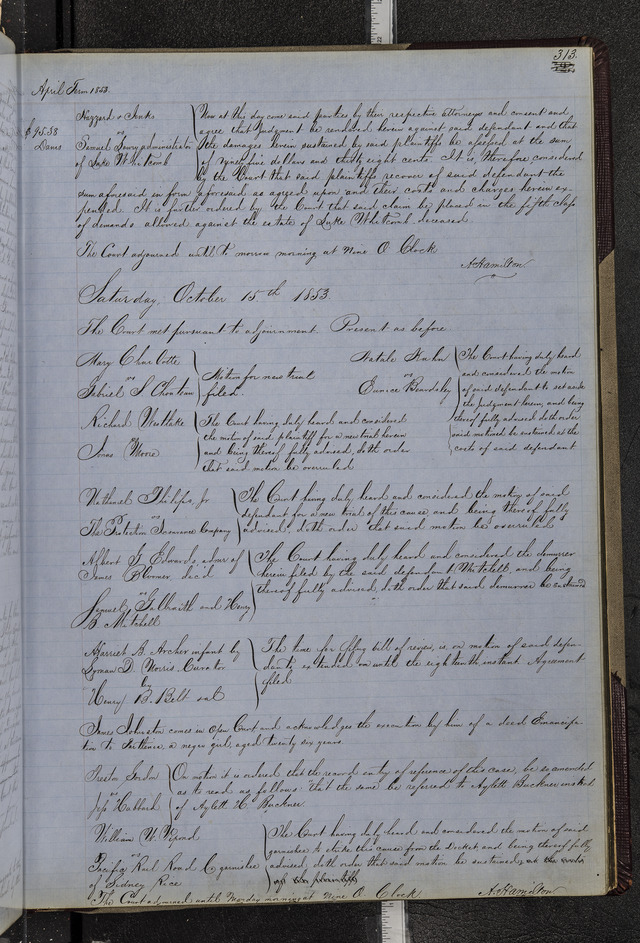 313.
April Term 1853.
$95.38
Dam's
Hazzard & Jenks
vs
Samuel Lowry administrator
of Luke Whitcomb
Now at this day come said parties by their respective attorneys and consent and
agree that judgment be rendered herein against said defendant and that
the damages herein sustained by said plaintiffs be assessed at the sum
of ninety nine dollars and thirty eight cents. It is therefore considered
by the Court that said plaintiffs recover of said defendant the
sum aforesaid in form aforesaid as agreed upon and their costs and charges herein ex-
pended. It is further ordered by the Court that said claim be placed in the fifth class
of demands allowed against the estate of Luke Whitcomb deceased
The Court adjourned until to morrow morning at Nine O Clock
A. Hamilton
Saturday, October 15th 1853
The Court met pursuant to adjournment. Present as before
Mary Charlotte
vs
Gabriel S Chouteau
Motion for new trial
filed.
vs
Eunice Beardsley
The Court having duly heard
and considered the motion
of said defendant to set aside
the judgment herein, and being
thereof fully advised doth order
said motion be sustained at the
costs of said defendant
Richard Westlake
vs
Jonas Moore
The Court having duly heard and considered
the motion of said plaintiff for a new trial herein
and being thereof fully advised, doth order
that said motion be overruled
Nathaniel Philips, jr
vs
The Protection Insurance Company
The Court having duly heard and considered the motion of said
defendant for a new trial of this cause and being thereof fully
advised, doth order that said motion be overruled
Albert G. Edwards, admr of
James decd
vs
Samuel G. and Henry
B Mitchell
The Court having duly heard and considered the demurrer
herein filed by the said defendant Mitchell, and being
thereof fully advised, doth order that said demurrer be sustained
Harriet A. Archer infant by
Lyman D. Norris Curator
vs
Henry B. Belt et al
The time for filing bill of review, is on motion of said defen-
dants extended on until the eighteenth instant Agreement
filed
James Johnston comes in open Court and acknowledges the execution by him of a deed Emancipa-
tion to a negro girl, aged twenty six years.
vs
Hubbard
On motion it is ordered that the record entry of reference of this case, be so amended
as to read as follows "that the same be referred to Aylett Buckner instead
of Aylett H. Buckner
William W.
vs
Pacific Rail Road Co garnishee
of Sidney Rice
The Court having duly heard and considered the motion of said
garnishee to strike this cause from the docket and being thereof fully
advised, doth order that said motion be sustained, at the costs
of the plaintiff
The Court adjourned until Monday morning at Nine O. Clock
A. Hamilton